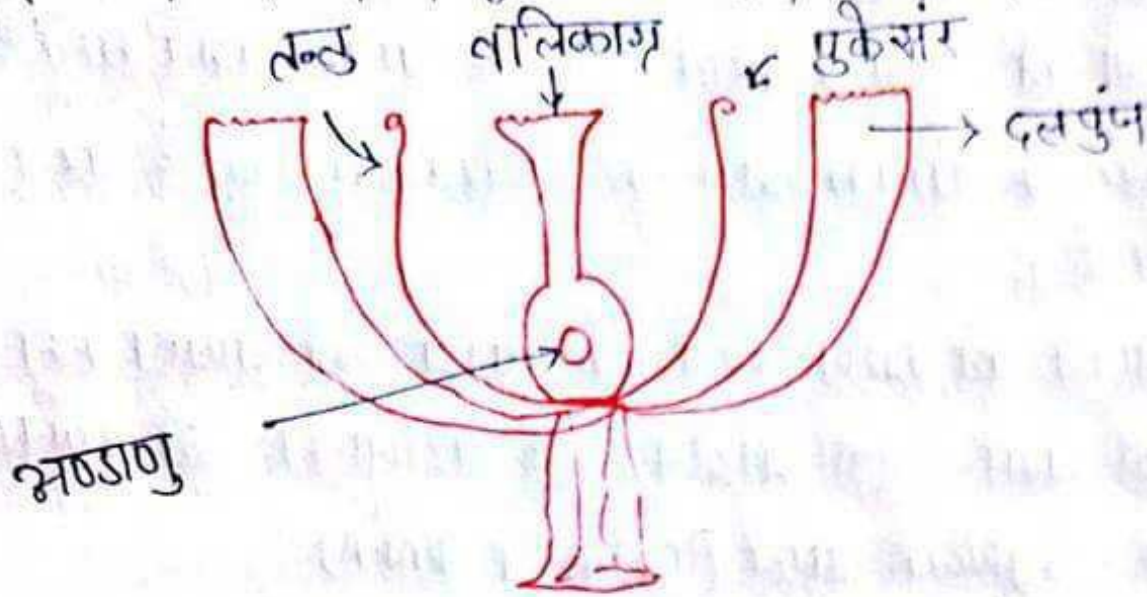 तन्तु वर्तिकाग्र पुकेसर
दलपुंज
अण्डाणु